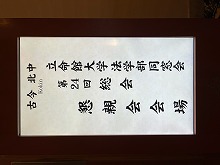 古今 北中
Kokin
立命館大学法学部同窓会
第24回 総会
懇親会会場